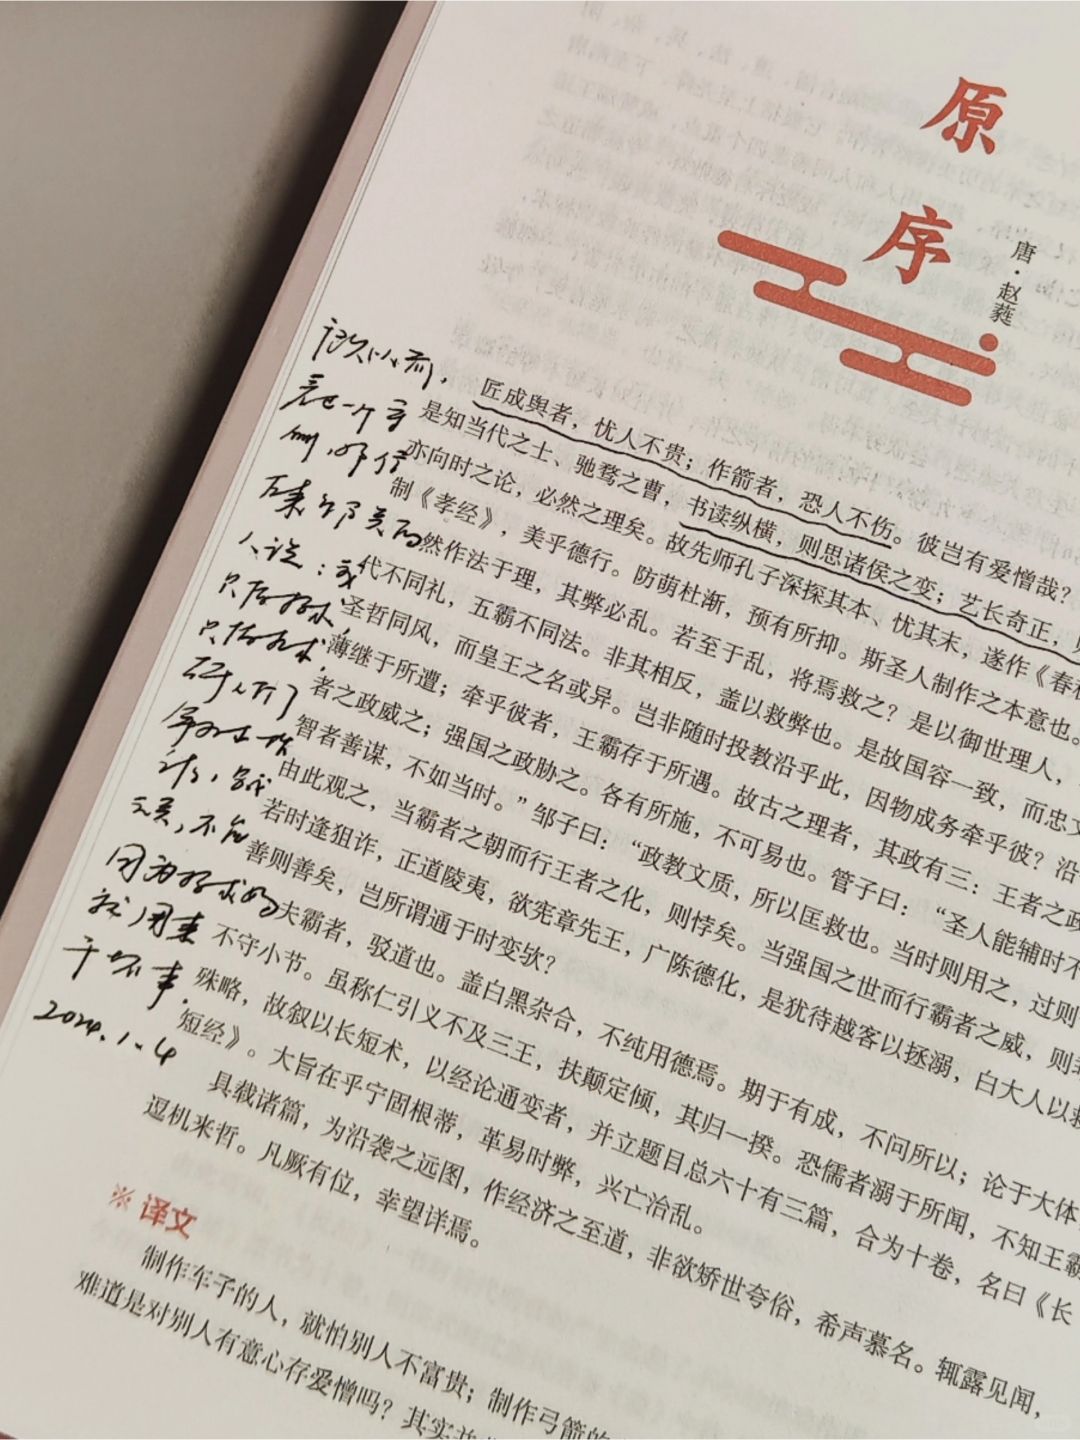 原序
唐·赵蕤
匠成舆者，忧人不贵；作箭者，恐人不伤。彼岂有爱憎哉？
是知当代之士、驰骛之曹，书读纵横，则思诸侯之变；艺长奇正，则
亦向时之论，必然之理矣。故先师孔子深探其本、忧其末，遂作《春秋
制《孝经》，美乎德行。防萌杜渐，预有所抑。斯圣人制作之本意也。
然作法于理，其弊必乱。若至于乱，将焉救之？是以御世理人，
代不同礼，五霸不同法。非其相反，盖以救弊也。是故国容一致，而忠文
圣哲同风，而皇王之名或异。岂非随时投教沿乎此，因物成务牵乎彼？沿
薄继于所遭；牵乎彼者，王霸存于所遇。故古之理者，其政有三：王者之政
者之政威之；强国之政胁之。各有所施，不可易也。管子曰：“圣人能辅时不
智者善谋，不如当时。”邹子曰：“政教文质，所以匡救也。当时则用之，过则
由此观之，当霸者之朝而行王者之化，则悖矣。当强国之世而行霸者之威，则
若时逢狙诈，正道陵夷，欲宪章先王，广陈德化，是犹待越客以拯溺，白大人以救
善则善矣，岂所谓通于时变欤？
夫霸者，驳道也。盖白黑杂合，不纯用德焉。期于有成，不问所以；论于大体
不守小节。虽称仁引义不及三王，扶颠定倾，其归一揆。恐儒者溺于所闻，不知王霸
殊略，故叙以长短术，以经论通变者，并立题目总六十有三篇，合为十卷，名曰《长
短经》。大旨在乎宁固根蒂，革易时弊，兴亡治乱。
具载诸篇，为沿袭之远图，作经济之至道，非欲矫世夸俗，希声慕名。辄露见闻，
逗机来哲。凡厥有位，幸望详焉。
※ 译文
制作车子的人，就怕别人不富贵；制作弓箭的
难道是对别人有意心存爱憎吗？其实并
人说：
不能
因为
就用来
干坏事.
2024.1.4